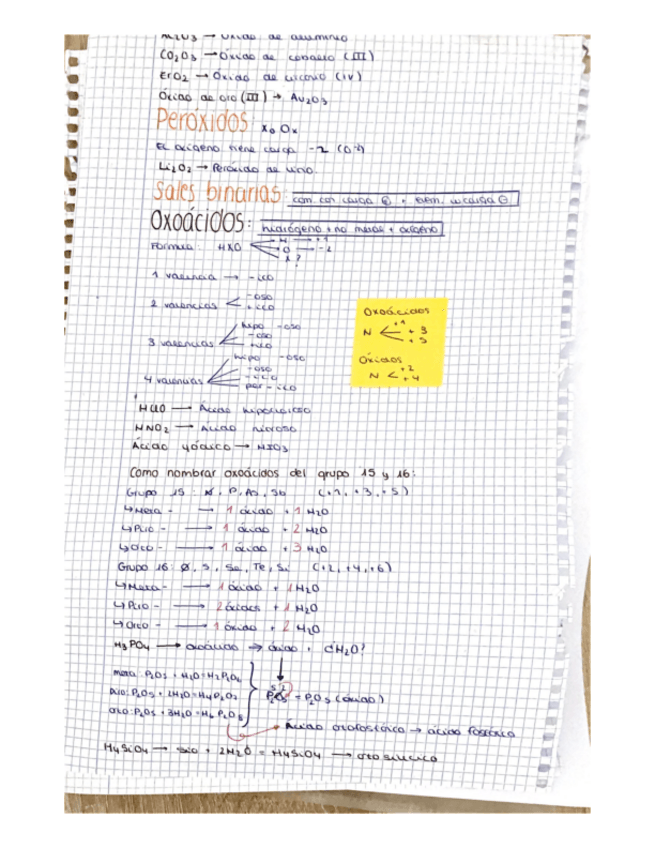 Al2O3 → Óxido de aluminio
CO2O3 → Óxido de cobalto (III)
ZrO2 → Óxido de circonio (IV)
Óxido de oro (III) → Au2O3
Peróxidos: X2 Ox
El oxígeno tiene carga -2 (O-2)
Li2O2 → Peróxido de litio
Sales binarias: com. con carga ⊕ + elem. w carga ⊖
Oxoácidos: hidrógeno + no metal + oxígeno
Formula: HXO
H → +1
O → -2
X ?
1 valencia → -ico
2 valencias
-oso
-ico
3 valencias
hipo -oso
-oso
-ico
4 valencias
hipo -oso
-oso
-ico
per - ico
Oxoácidos
N
+1
+3
+5
Óxidos
N
+2
+4
HClO → Ácido hipocloroso
HNO2 → Ácido nitroso
Ácido yódico → HIO3
Como nombrar oxoácidos del grupo 15 y 16:
Grupo 15: N, P, As, Sb (+1, +3, +5)
↳ Meta - → 1 óxido + 1 H2O
↳ Piro - → 1 óxido + 2 H2O
↳ Orto - → 1 óxido + 3 H2O
Grupo 16: O, S, Se, Te, Si (+2, +4, +6)
↳ Meta - → 1 óxido + 1 H2O
↳ Piro - → 2 óxidos + 1 H2O
↳ Orto - → 1 óxido + 2 H2O
H3PO4 → oxoácido → óxido + ¿H2O?
meta: P2O5 + H2O = H2P2O6
piro: P2O5 + 2H2O = H4P2O7
orto: P2O5 + 3H2O = H6P2O8
= P2O5 (óxido)
Ácido ortofosfórico → ácido fosfórico
H4SiO4 → SiO + 2H2O = H4SiO4 → ortosilícico